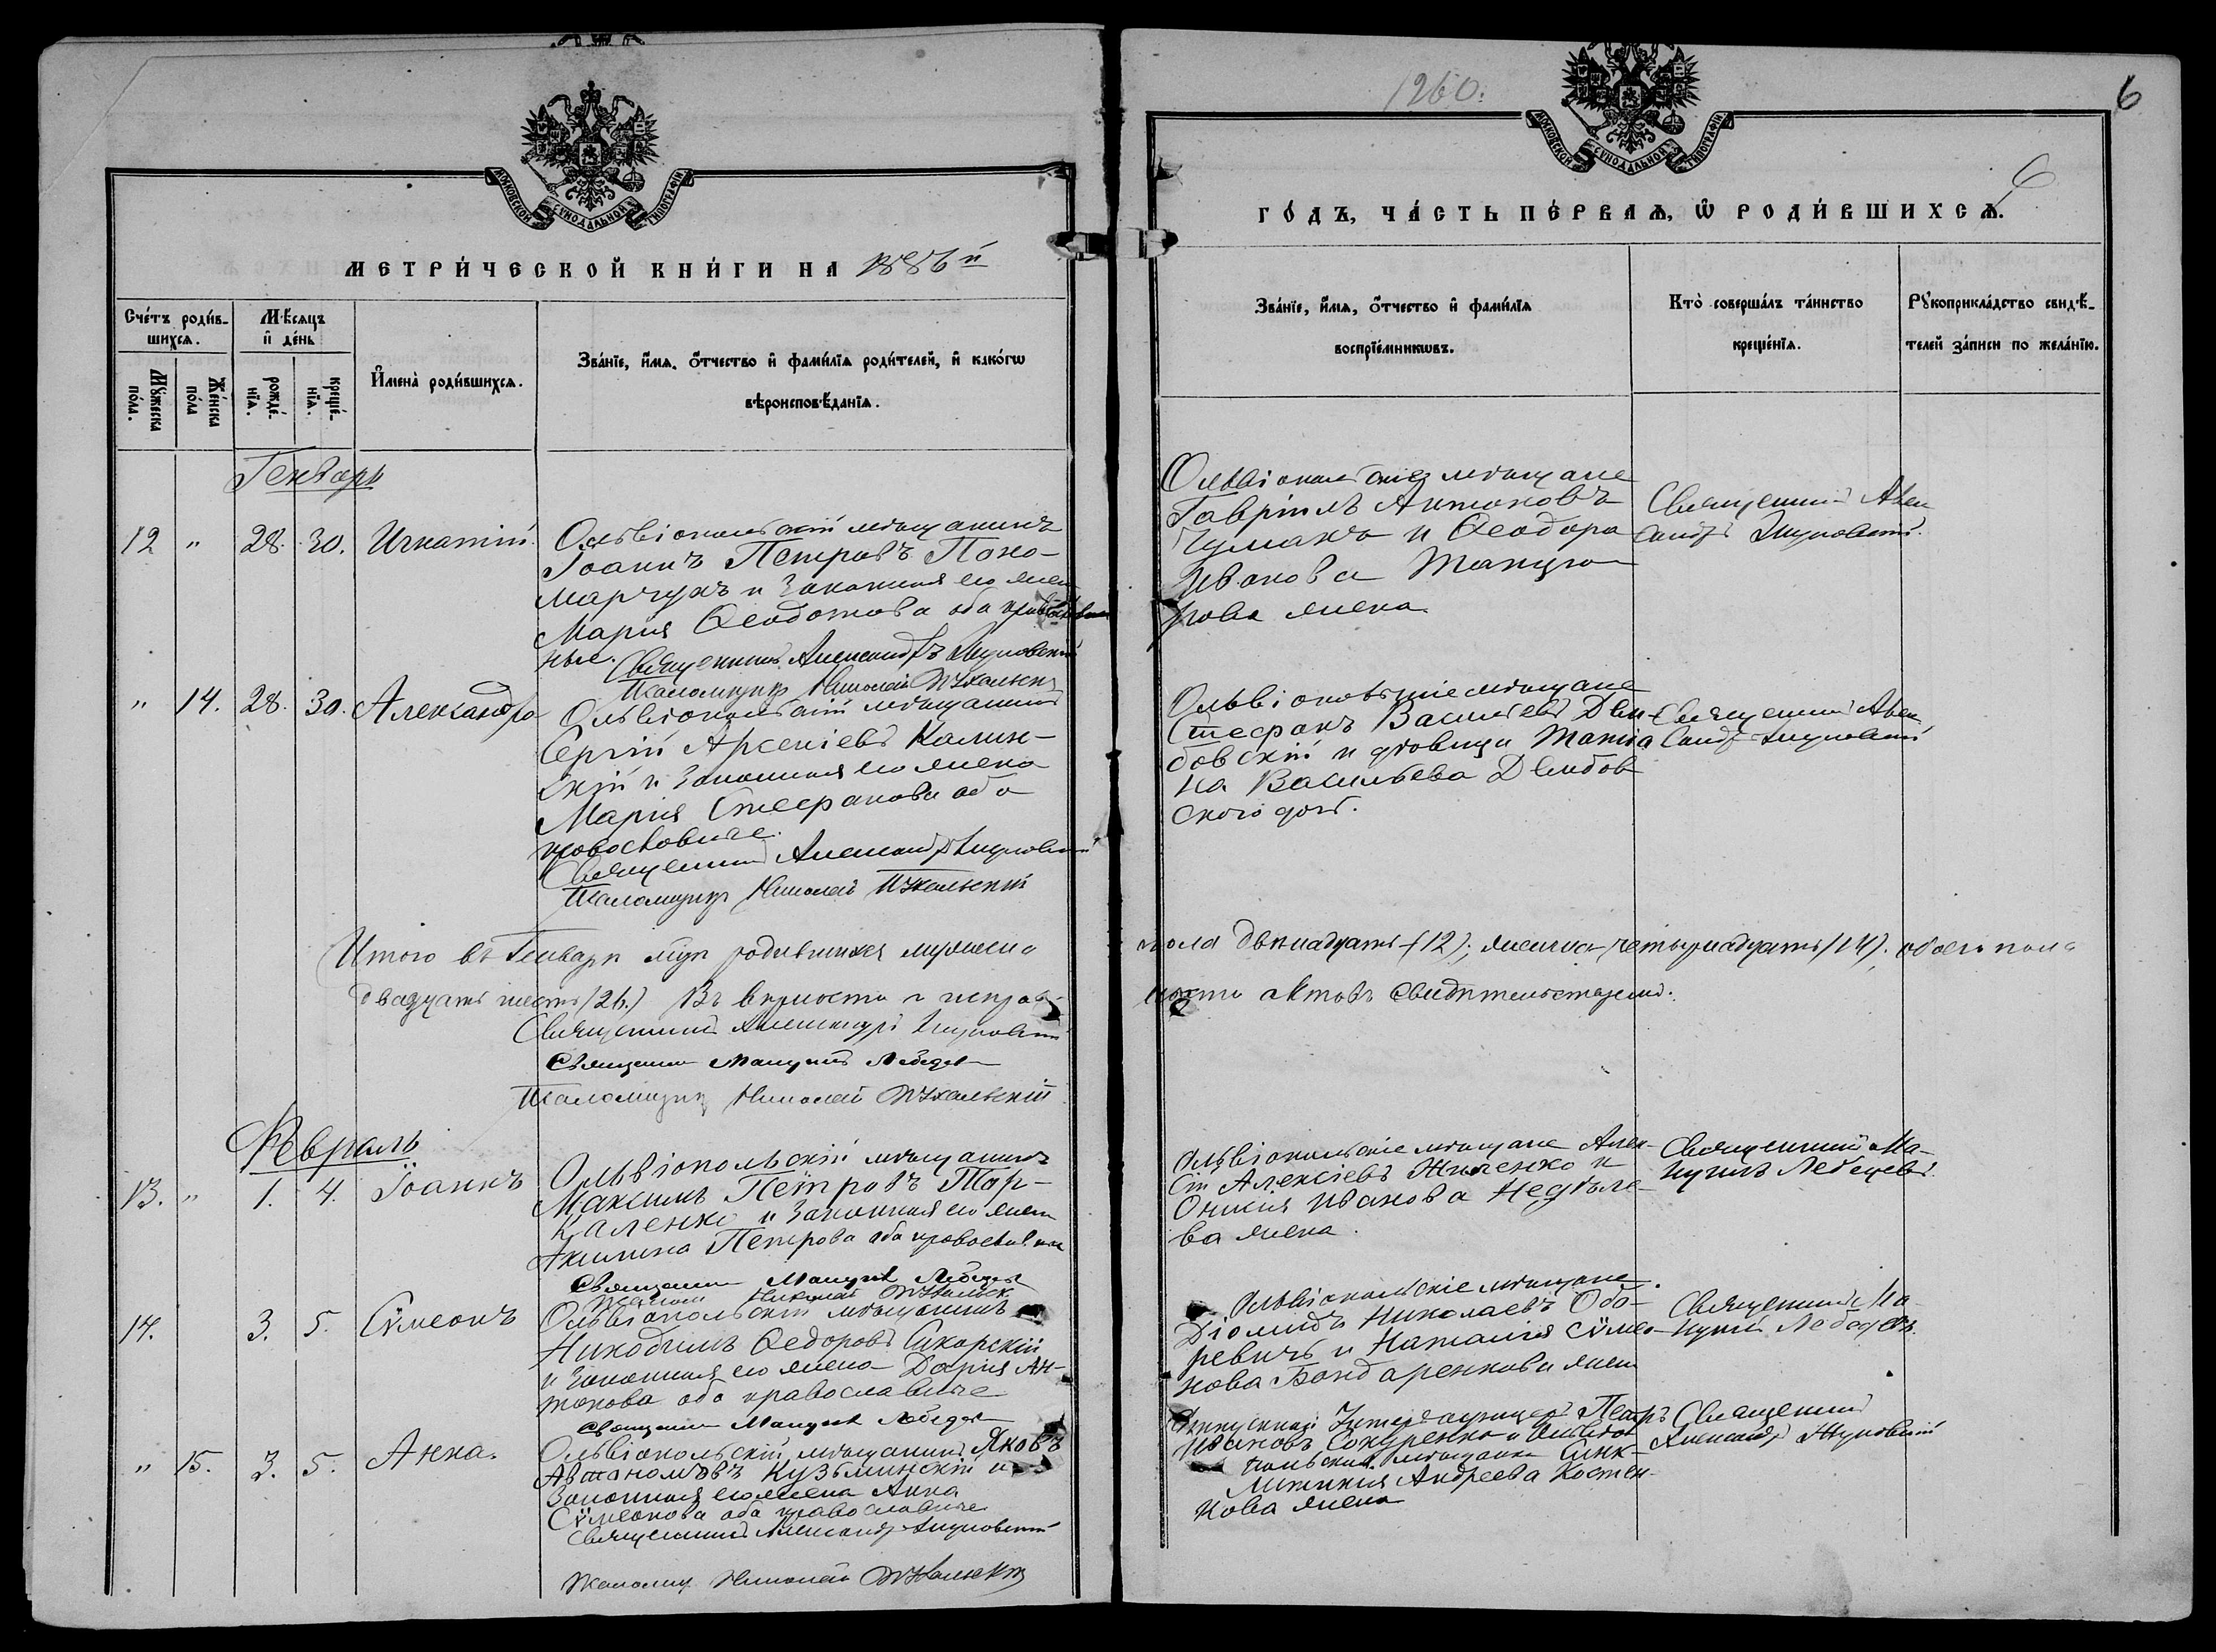 МОСКОВСКОЙ СУНОДАЛЬНОЙ ТИПОГРАФІИ
МЕТРИ́ЧЕСКОЙ КНИ́ГИ НА 1886й
Сче́тъ роди́в-
шихсѧ.
Мѣ́сѧцъ
и҆ де́нь
Мꙋ́жеска
по́ла.
Же́нска
по́ла
рожде́-
нїѧ.
креще́-
нїѧ.
И҆мена̀ роди́вшихсѧ.
Зва́нїе, и҆́мѧ, ѻ҆́тчество и҆ фами́лїѧ роди́телей, и҆ како́гѡ
вѣроисповѣ́данїѧ.
Генварь
12 " 28. 30. Игнатій
Ольвіопольскій мѣщанинъ
Іоаннъ Петровъ Поно-
марчукъ и законная его жена
Марія Ѳеодотова оба православ
ные. Священникъ Александръ
Псаломщикъ Николай
" 14. 28. 30. Александра
Ольвіопольскій мѣщанинъ
Сергій Арсеніевъ Калин-
скій и законная его жена
Марія Стефанова оба
православные.
Священникъ Александръ
Псаломщикъ Николай
Итого въ Генварѣ мцѣ родившихся мужеска
двадцать шесть (26.) Въ вѣрности и исправ-
Священникъ Александръ
Священникъ Мануилъ Лебедевъ
Псаломщикъ Николай
Февраль
13. " 1. 4. Іоаннъ
Ольвіопольскій мѣщанинъ
Максимъ Петровъ Тар-
каленко и законная его жена
Акилина Петрова оба православные
Священникъ Мануилъ Лебедевъ
Николай
14. 3. 5. Сѵмеонъ
Ольвіопольскій мѣщанинъ
Никодимъ Ѳедоровъ Сикорскій
и законная его жена Дарія Ан-
тонова оба православные
Священникъ Мануилъ Лебедевъ
" 15. 3. 5. Анна.
Ольвіопольскій мѣщанинъ Яковъ
Автаномовъ Кузьминскій и
законная его жена Анна
Сѵмеонова оба православные
Священникъ Александръ
Псаломщ Николай
1260.
6
МОСКОВСКОЙ СУНОДАЛЬНОЙ ТИПОГРАФІИ
6
ГО́ДЪ, ЧА́СТЬ ПЕ́РВАѦ, Ѡ҆ РОДИ́ВШИХСѦ.
Зва́нїе, и҆́мѧ, ѻ҆́тчество и҆ фами́лїѧ
воспрїе́мникѡвъ.
Кто̀ соверша́лъ та́инство
креще́нїѧ.
Рꙋкоприкла́дство свидѣ́-
телей за́писи по жела́нїю.
Ольвіопольскіе мѣщане
Гавріилъ Антоновъ
Чумакъ и Ѳеодора
Иванова
жена
Священникъ Алек
сандръ
Ольвіопольскіе мѣщане
Стефанъ Василіевъ Дем-
бовскій и дѣвица Татіа
на Васильева Дембов
ского дочь.
Священникъ Алек
сандръ
пола двѣнадцать (12); женска четырнадцать (14). обоего пола
ности актовъ свидѣтельствуемъ.
Ольвіопольскіе мѣщане Алек-
сій Алексіевъ и
Онисія Иванова Недѣлко-
ва жена.
Священникъ Ма-
нуилъ Лебедевъ.
Ольвіопольскіе мѣщане
Діомидъ Николаевъ Оба-
ревичъ и Наталія Сѵмео-
нова Бондаренкова жена
Священникъ Ма
нуилъ Лебедевъ.
Петръ
Ивановъ Сокуренко и Ольвіо
польская мѣщанка Синк-
литикія Андреева Костен-
кова жена
Священникъ
Александръ